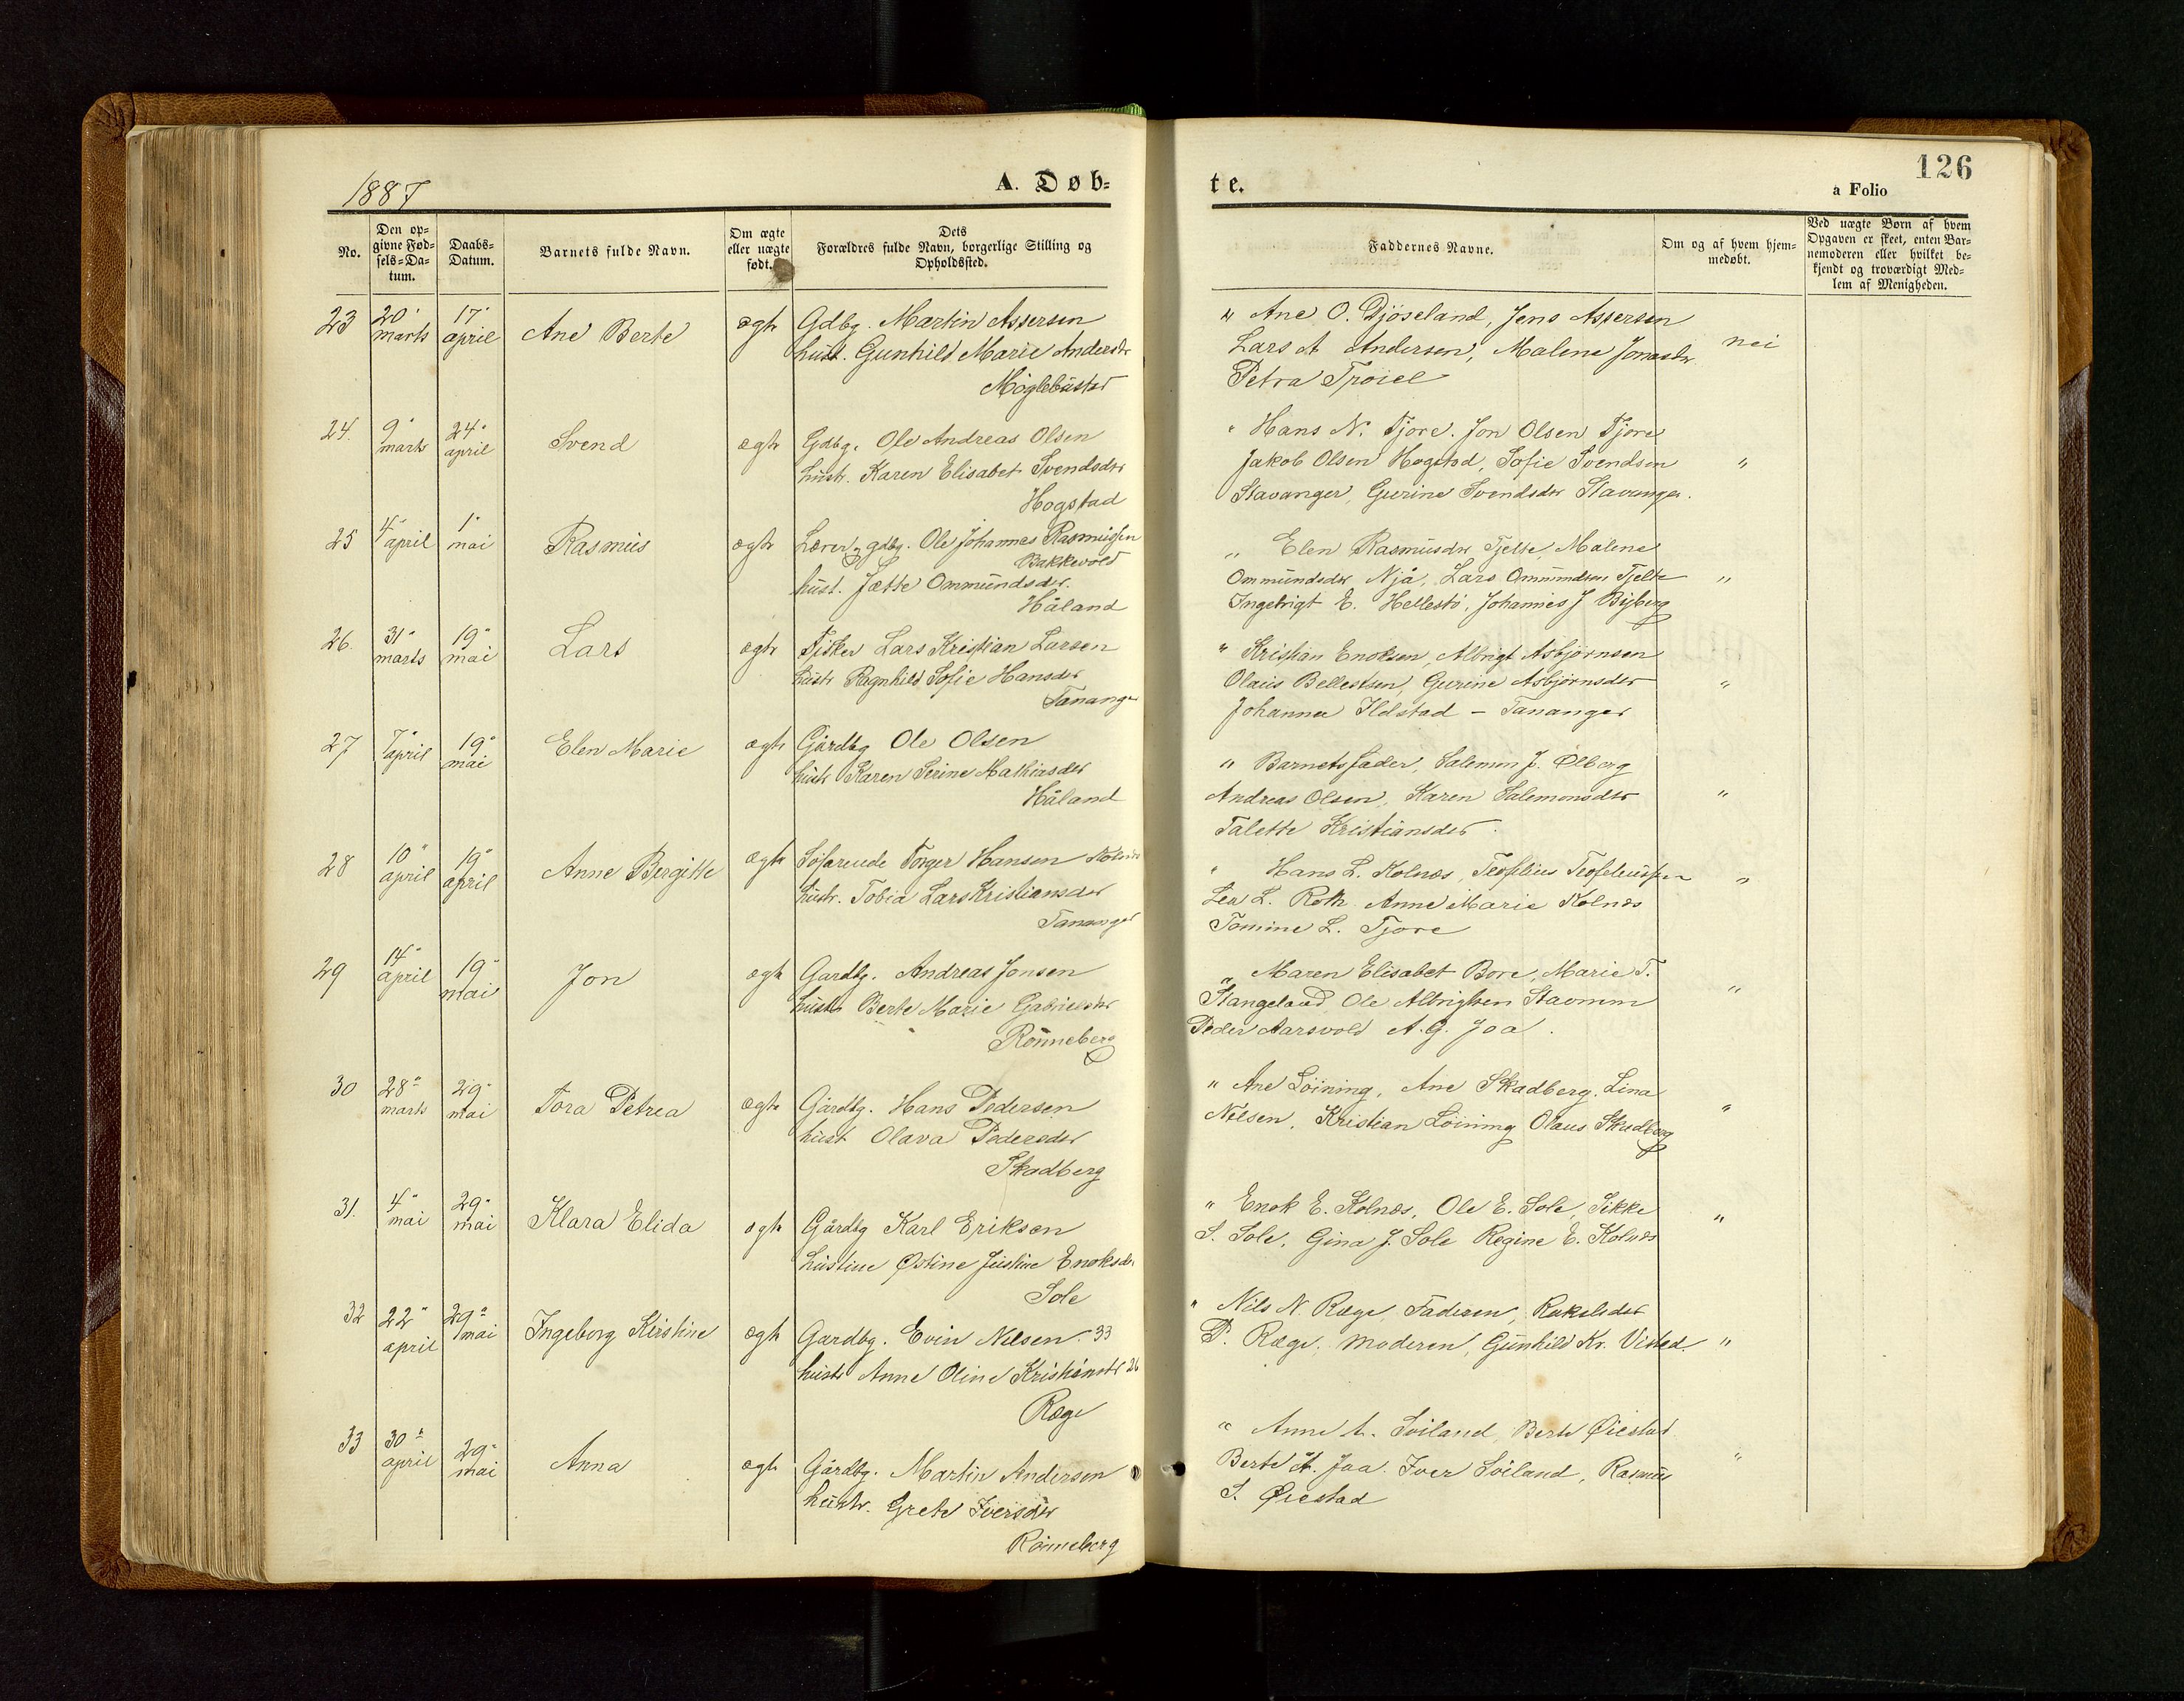 1887
A. Døb-
No.
Den op-
givne Fød-
sels-Da-
tum.
Daabs-
Datum.
Barnets fulde Navn.
Om ægte
eller uægte
født.
Dets
Forældres fulde Navn, borgerlige Stilling og
Opholdssted.
23
20"
marts
17"
april
Ane Berte
ægte
Gdbg. Martin Assersen
hust. Gunhild Marie Andersdr
Møglebustad
24.
9"
marts
24"
april
Svend
ægte
Gdbg. Ole Andreas Olsen
hustr. Karen Elisabet Svendsdtr
Hogstad
25
4"
april
1"
mai
Rasmus
ægte
Lærer og gdbg. Ole Johannes Rasmussen
Bakkevold
hust. Jætte Ommundsdr.
Håland
26.
31"
marts
19"
mai
Lars
ægte
Fisker Lars Kristian Larsen
hustr Ragnhild Sofie Hansdr
Tananger
27
7"
april
19"
mai
Elen Marie
ægte
Gårdbg Ole Olsen
hustr Karen Serine Mathiasdr
Håland
28
10"
april
19"
april
Anne Bergitte
ægte
Søfarende Torger Hansen Kolnes
hustr. Tobia Lars Kristiansdr
Tananger
29
14"
april
19"
mai
Jon
ægte
Gardbg. Andreas Jonsen
hustr Berte Marie Gabrielsdr
Rønneberg
30
28"
marts
29"
mai
Tora Petrea
ægte
Gårdbg. Hans Pedersen
hust Olava Pedersdr
Skadberg
31.
4"
mai
29"
mai
Klara Elida
ægte
Gårdbg Karl Eriksen
hustrue Østine Justine Enoksdr
Sole
32
22"
april
29"
mai
Ingeborg Kirstine
ægte
Gardbg. Evin Nilsen 33
hustr Anne Oline Kristiansdr 26
Ræge
33
30"
april
29"
mai
Anna
ægte
Gårdbg. Martin Andersen
hustr. Grete Iversdtr
Rønneberg
te.
126
a Folio
Faddernes Navne.
Om og af hvem hjem-
medøbt.
Ved uægte Børn af hvem
Opgaven er skeet, enten Bar-
nemoderen eller hvilket be-
kjendt og troværdigt Med-
lem af Menigheden.
" Ane O. Djøseland, Jens Assersen
Lars A Andersen, Malene Jonasdr
Petra Troiel
nei
" Hans N. Tjore. Jon Olsen Tjore
Jakob Olsen Hogstad, Sofie Svendsen
Stavanger, Gurine Svendsdr Stavanger.
"
" Elen Rasmusdr Tjelte, Malene
Ommundsdr Njå, Lars Ommundsen Tjelte
Ingebrigt E. Hellestø, Johannes J Byberg
"
" Kristian Enoksen, Albrigt Asbjørnsen
Olaus Bellestsen, Gurine Asbjørnsdr
Johanna Ildstad – Tananger
"
" Barnets fader, Salemon J. Ølberg
Andreas Olsen, Karen Salemonsdr
Talette Kristiansdr.
"
" Hans L. Kolnæs, Teofilius Teofeliussen
L. Roth Anne Marie Kolnæs
Tomine L. Tjore
"
" Maren Elisabet Bore, Marie T.
Stangeland Ole Albrigtsen Stavnem
Peder Aarsvold A. G. Joa.
"
" Ane Löining, Ane Skadberg, Lina
Nilsen, Kristian Löining Olaus Skadberg
"
" Enok E. Kolnæs, Ole E. Sole, Sikke
S. Sole, Gina J. Sole Regine E. Kolnæs
"
" Nils N. Ræge, Faderen, Rakel
P. Ræge, moderen, Gunhild Kr. Visted.
"
" Anne A. Soiland, Berte Øiestad
Berte A. Joa. Iver Soiland, Rasmus
S. Øiestad
"